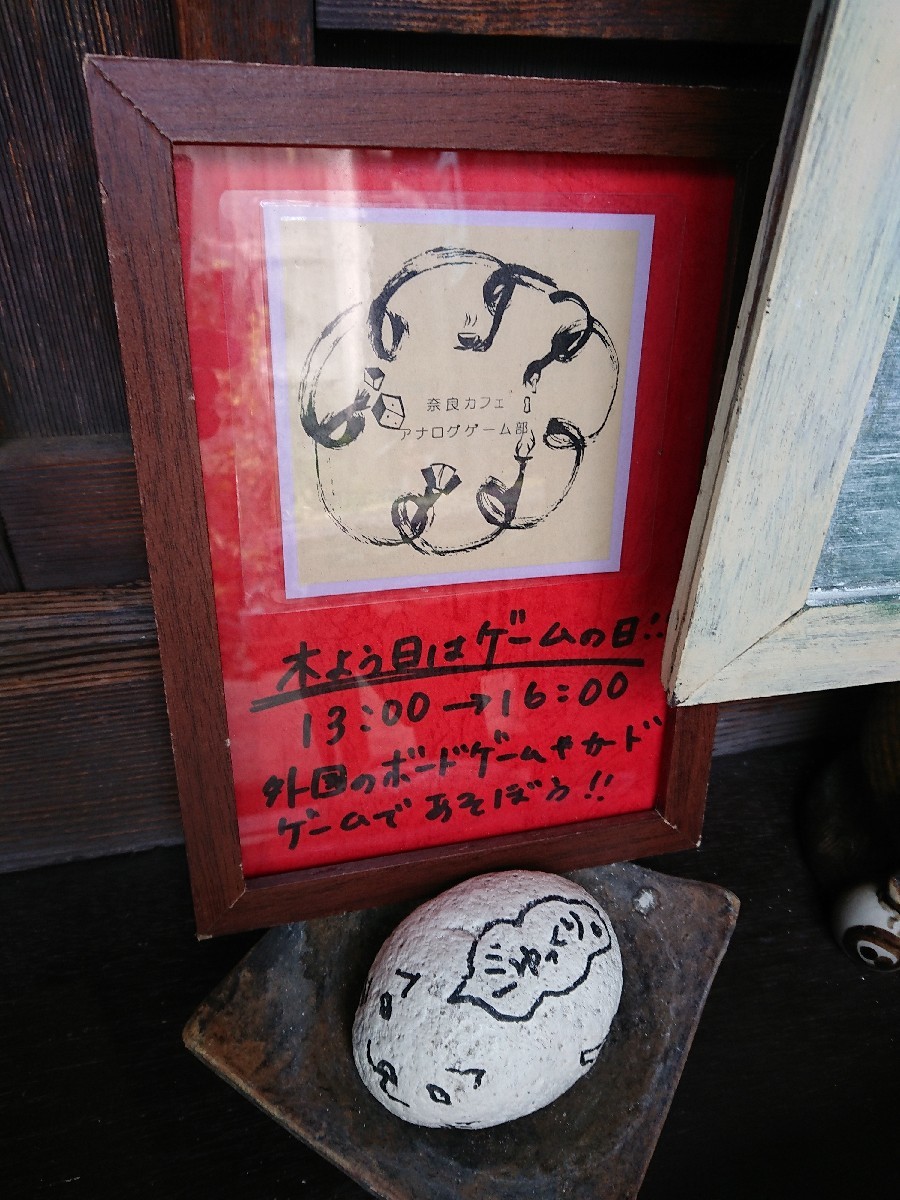 奈良カフェ
アナログゲーム部
木よう日はゲームの日∴
13:00→16:00
外国のボードゲームやカード
ゲームであそぼう!!